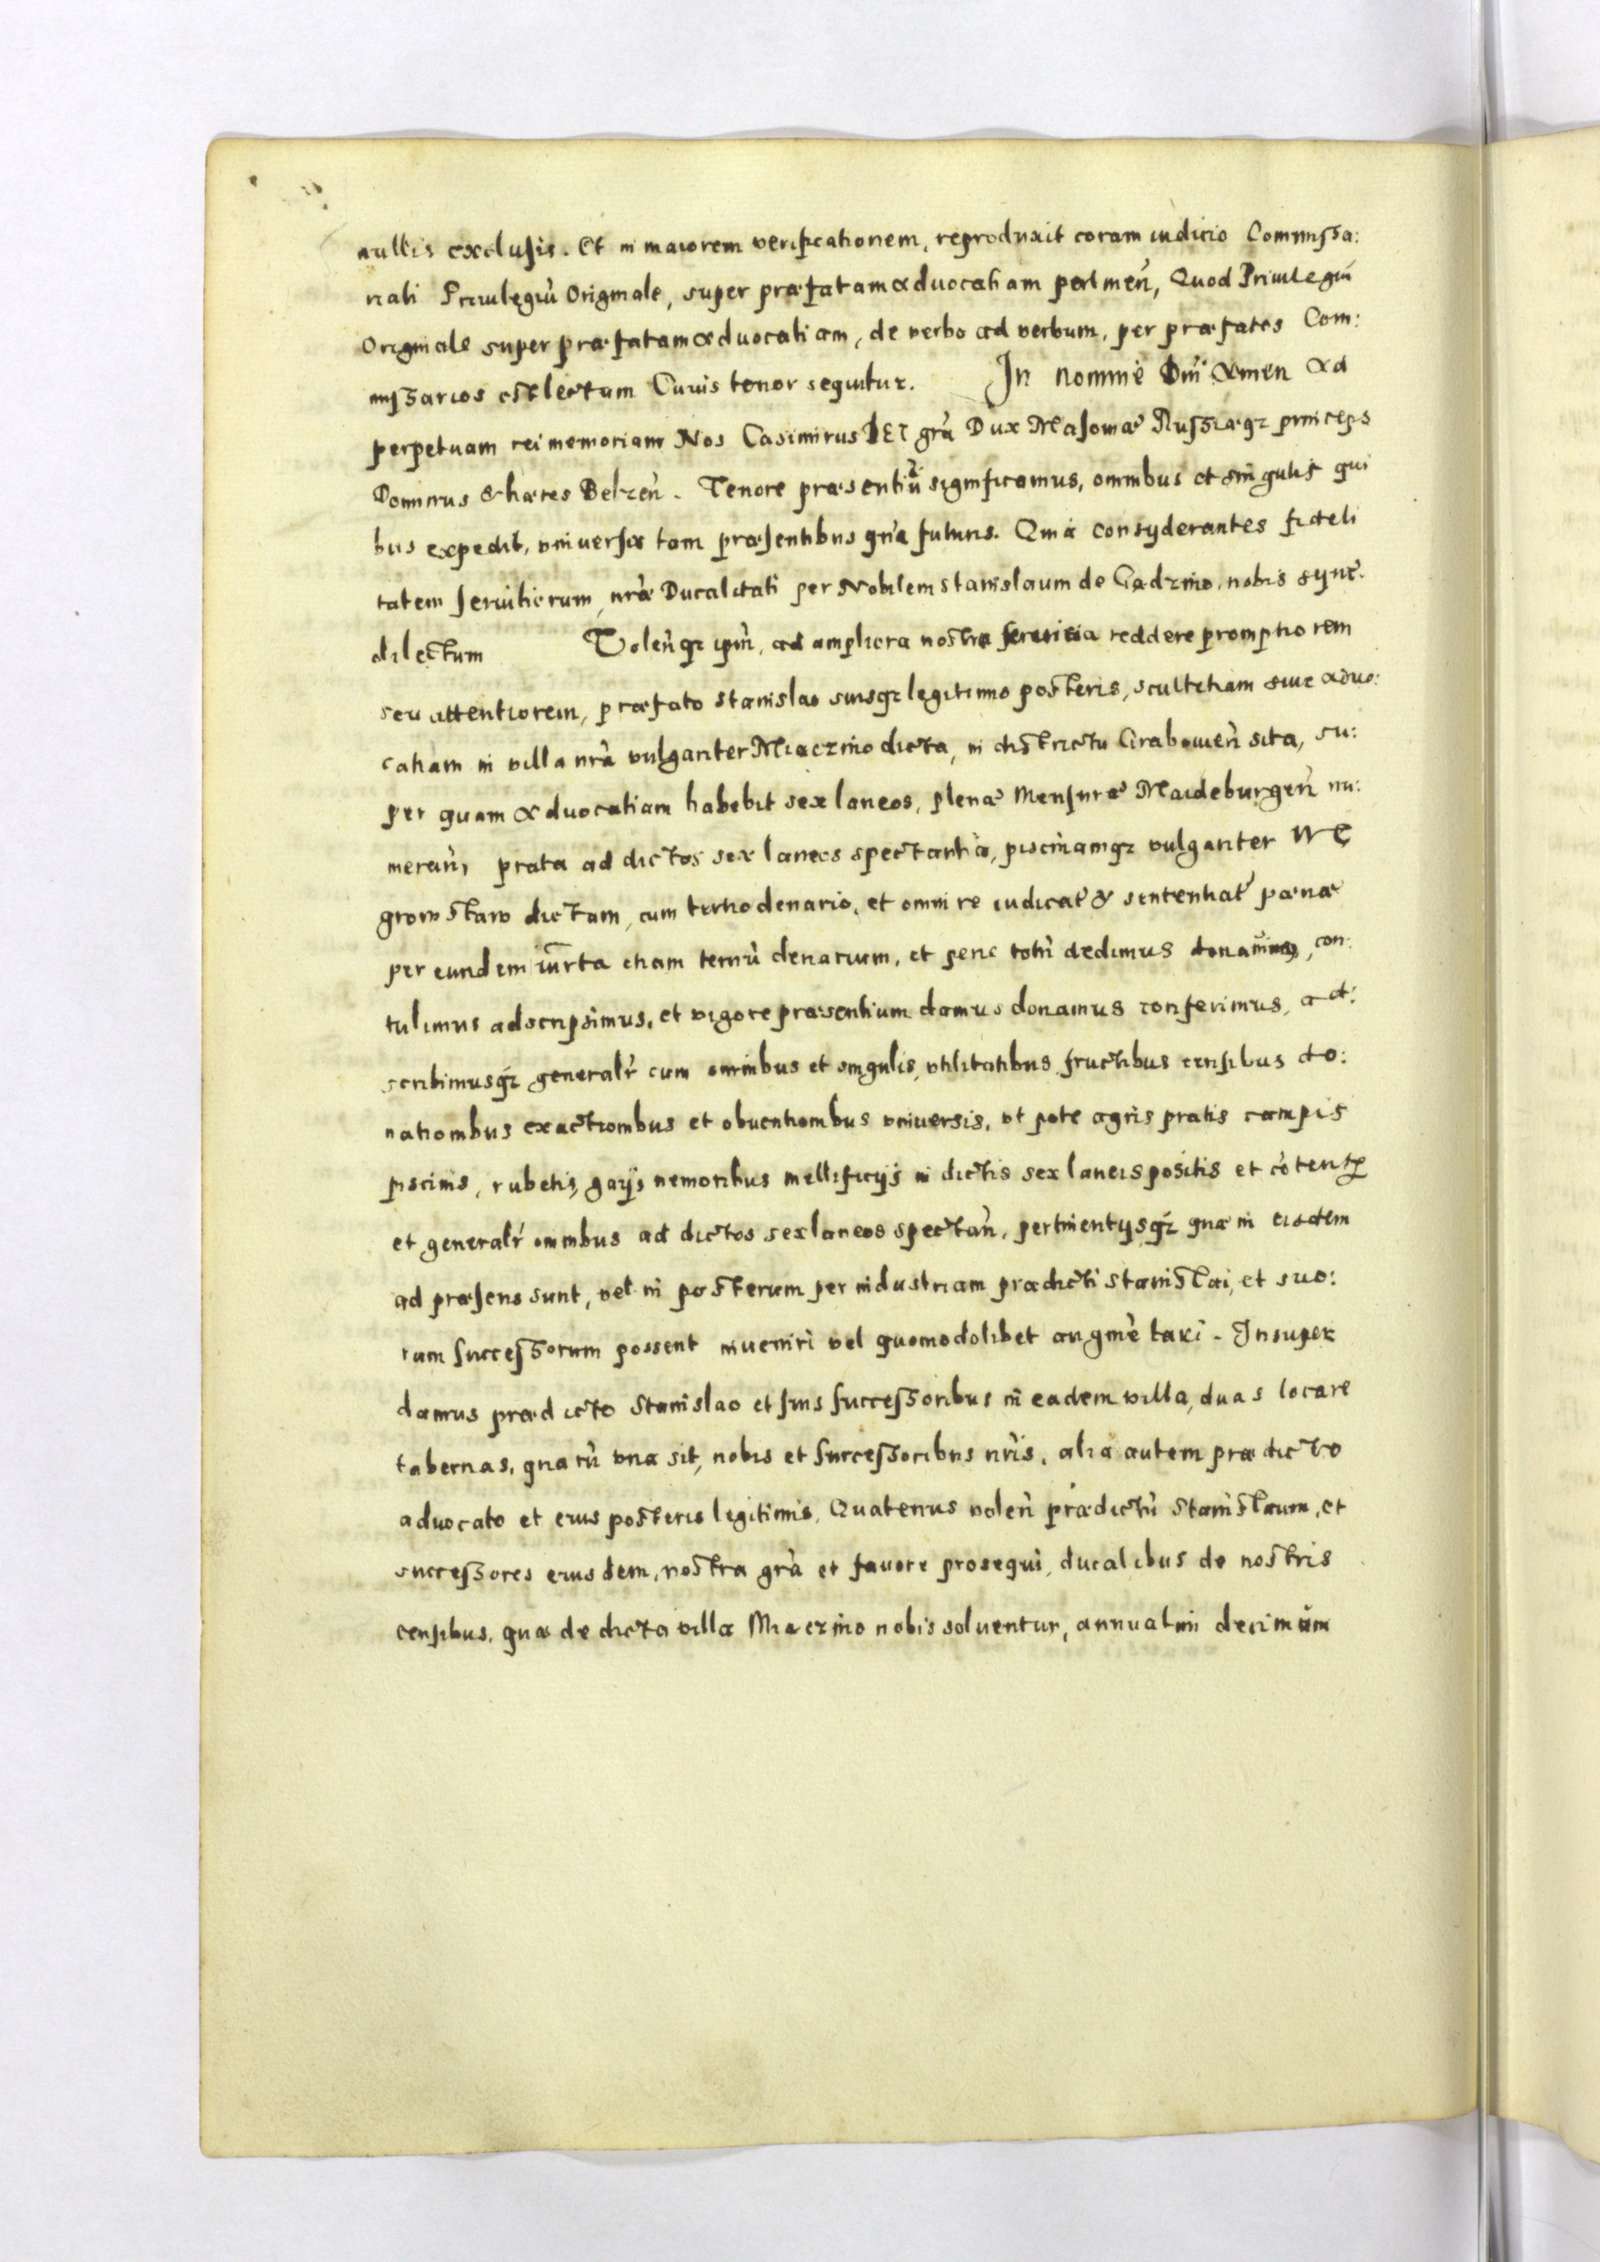 nullis exclusis. Et in maiorem verificationem, reproduxit coram iudicio Commissa:
riali Privilegiũ Originale, super præfatam advocatiam pertineñ, Quod Privilegiũ
Originale super præfatam advocatiam, de verbo ad verbum, per præfatos Com:
missarios est lectum Cuius tenor sequitur. In nomine Dñi Amen Ad
perpetuam rei memoriam Nos Casimirus DEI grã Dux Masoviæ Russiæq3 princeps
Dominus & hæres Belzeñ. Tenore præsentiũ significamus, omnibus et singulis qui
bus expedit, universis tam præsentibus quã futuris. Quia consyderantes fideli
tatem servitiorum nræ Ducalitati per Nobilem Stanislaum de Gadzino, nobis synč.
dilectum Voleñq3 ipm̃, ad ampliora nostra servitia reddere promptiorem
seu attentiorem, præfato Stanislao suisq3 legitimo posteris, scultetiam sive advo:
catiam in villa nrã vulgariter Miaczino dicta, in districtu Graboweñ sita, su:
per quam advocatiam habebit sex laneos, plenæ Mensuræ Maideburgeñ nu:
merañ, prata ad dictos sex laneos spectantia, piscinamq3 vulgariter WE
growstaw dictam, cum tertio denario, et omni re iudicat & sententiat pœnæ
per eundem iuxta etiam terciũ denarium, et penc totm̃ dedimus donamus, con:
tulimus adscripsimus, et vigore præsentium damus donamus conferimus, ad:
scribimusq3 generalr̃ cum omnibus et singulis, utilitatibus fructibus censibus do:
nationibus exactionibus et obventionibus universis, ut pote agris pratis campis
piscinis, rubetis, gayis nemoribus mellificijs in dictis sex laneis positis et cõtentp
et generalr̃ omnibus ad dictos sex laneos spectañ, pertinentysq3 quæ in eisdem
ad præsens sunt, vel in posterum per industriam prædicti Stanislai, et suo:
rum successorum possent inveniri vel quomodolibet augmẽtari. Insuper
damus prædicto Stanislao et suis successoribus in eadem villa, duas locare
tabernas, quarũ una sit, nobis et successoribus nr̃is, alia autem prædicto
advocato et eius posteris legitimis, Quatenus voleñ prædictũ Stanislaum, et
successores eiusdem, nostra grã et favore prosequi, ducalibus de nostris
censibus, quæ de dicta villa Miaczino nobis solventur, annuatim decimam